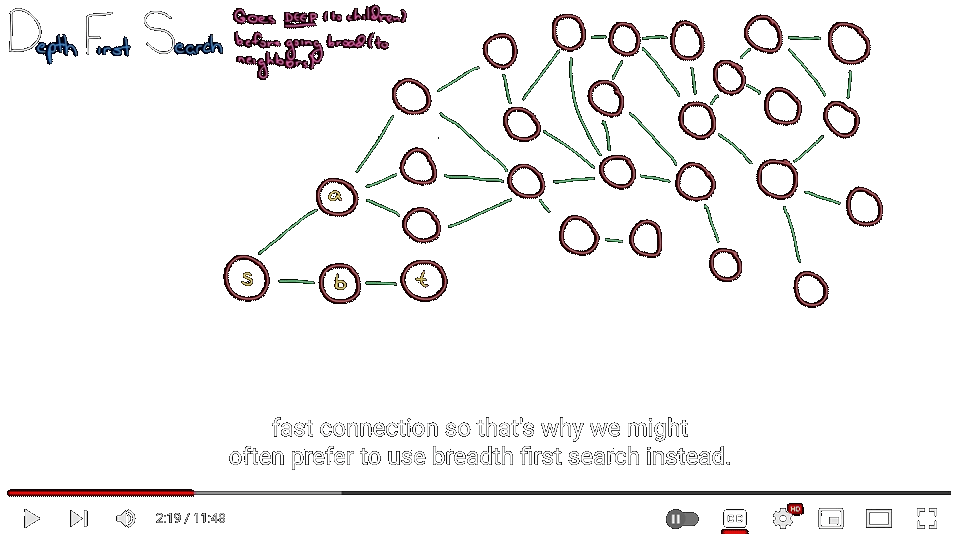 Depth First Search
Goes DEEP (to children)
before going broad (to
neighbors)
a
s
b
t
fast connection so that's why we might
often prefer to use breadth first search instead.
2:19 / 11:48
CC
HD